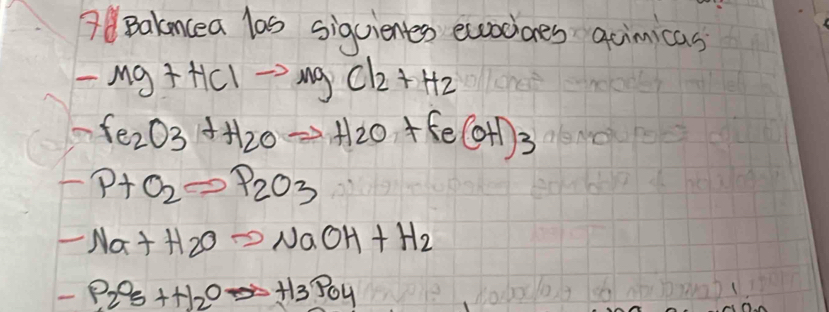 7 Balancea las siguientes ecuaciones químicas
- Mg + HCl → mg Cl2 + H2
- fe2O3 + H2O → H2O + fe(OH)3
- P + O2 → P2O3
- Na + H2O → NaOH + H2
- P2O5 + H2O → H3PO4